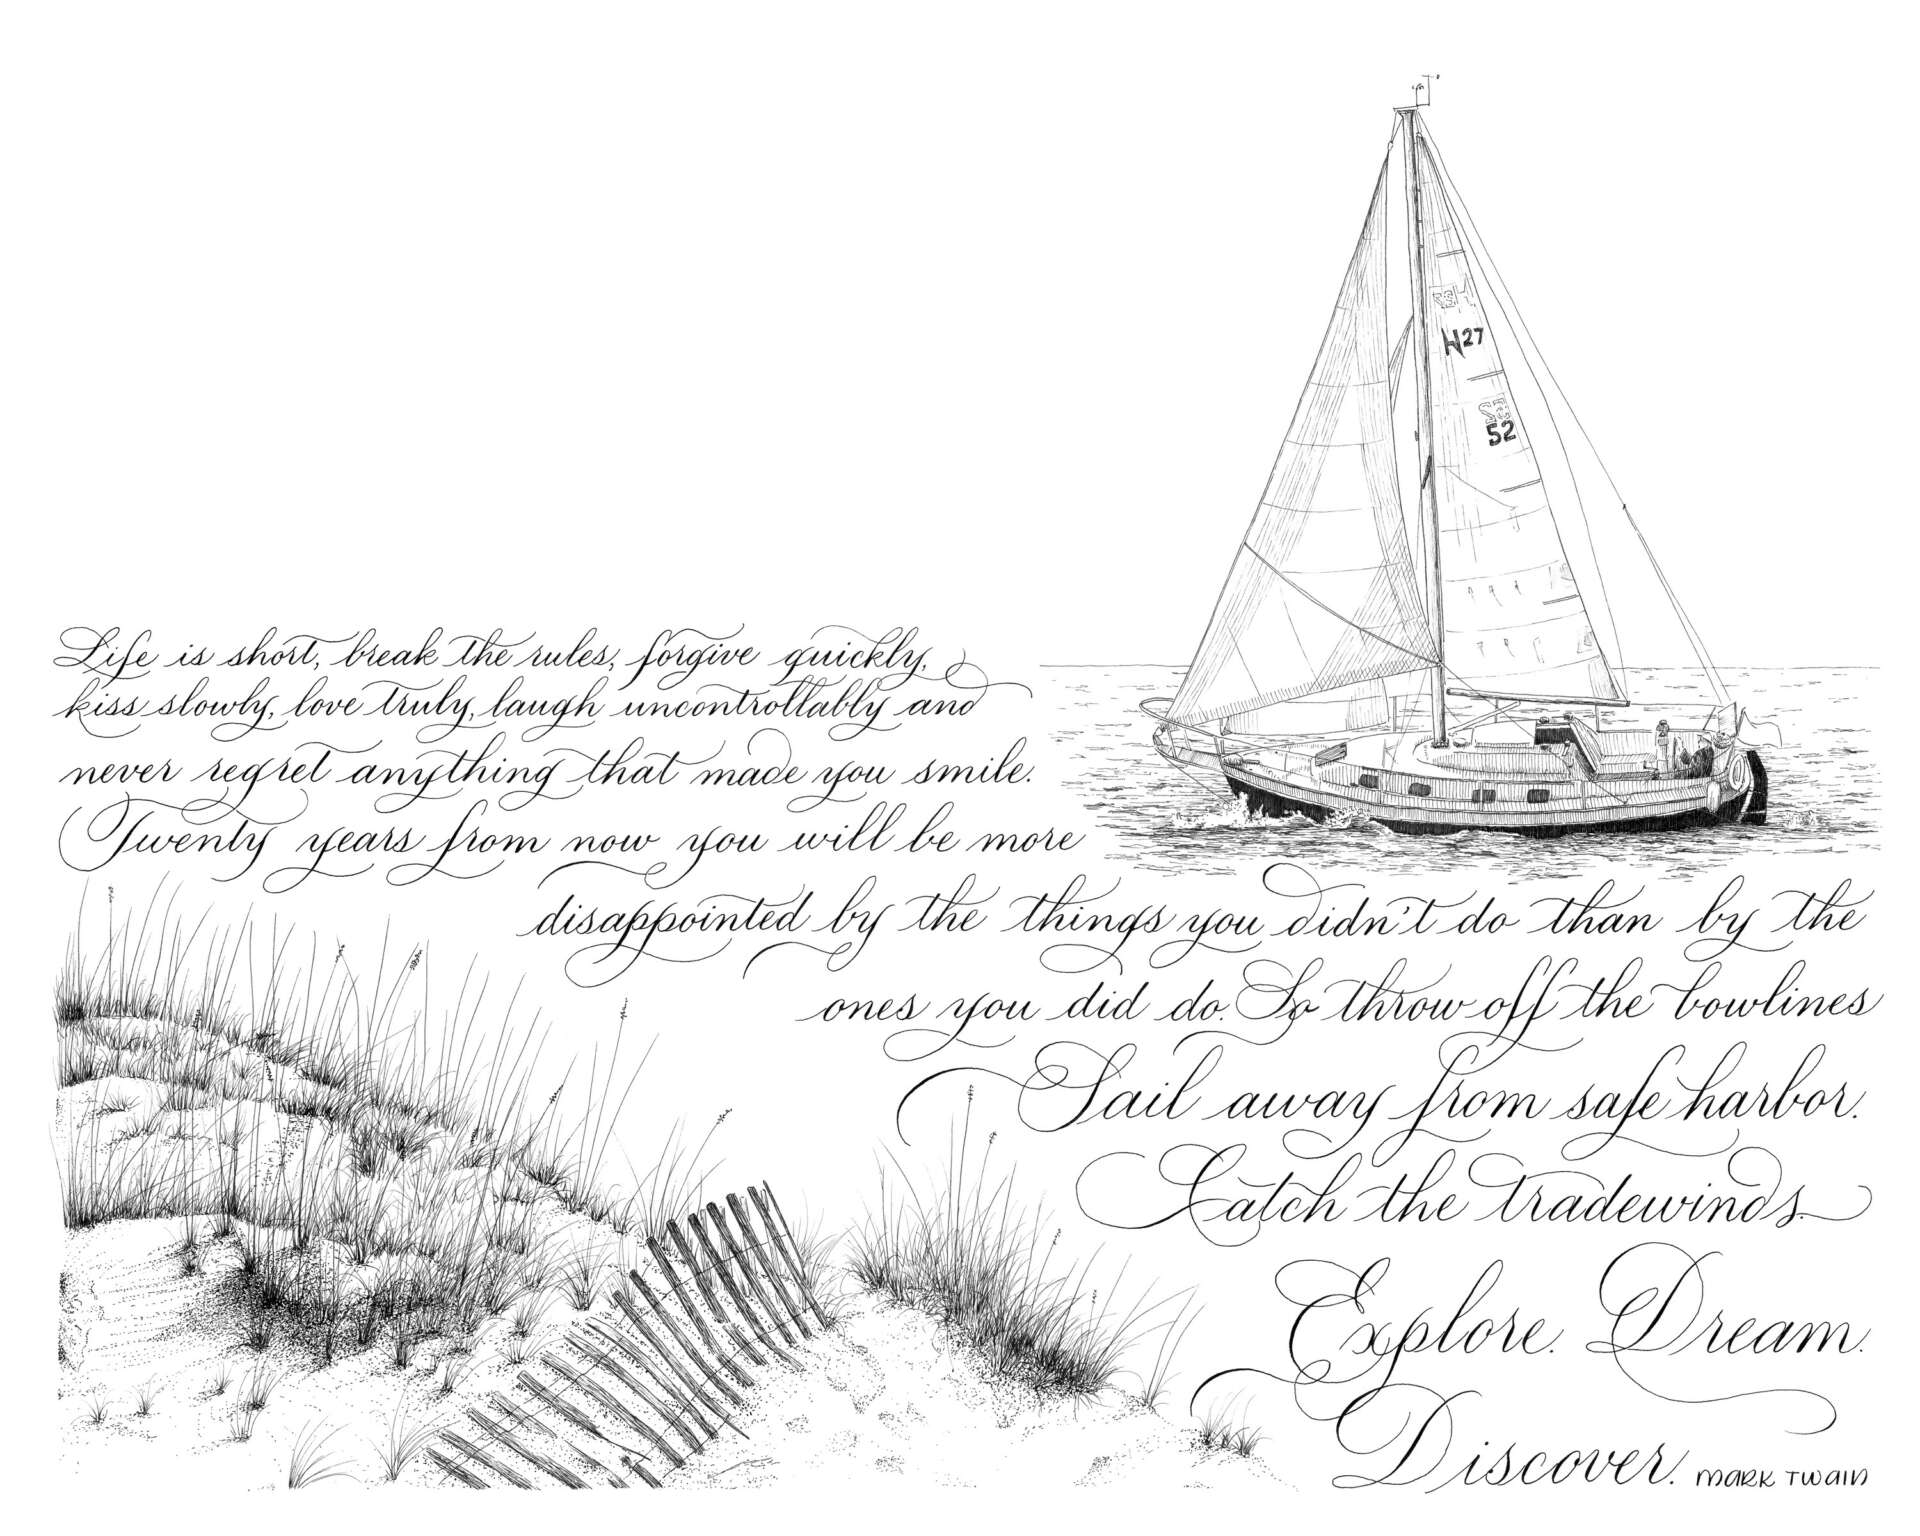 H27
52
Life is short, break the rules, forgive quickly,
kiss slowly, love truly, laugh uncontrollably and
never regret anything that made you smile.
Twenty years from now you will be more
disappointed by the things you didn't do than by the
ones you did do. So throw off the bowlines
Sail away from safe harbor.
Catch the tradewinds.
Explore. Dream.
Discover. MARK TWAIN